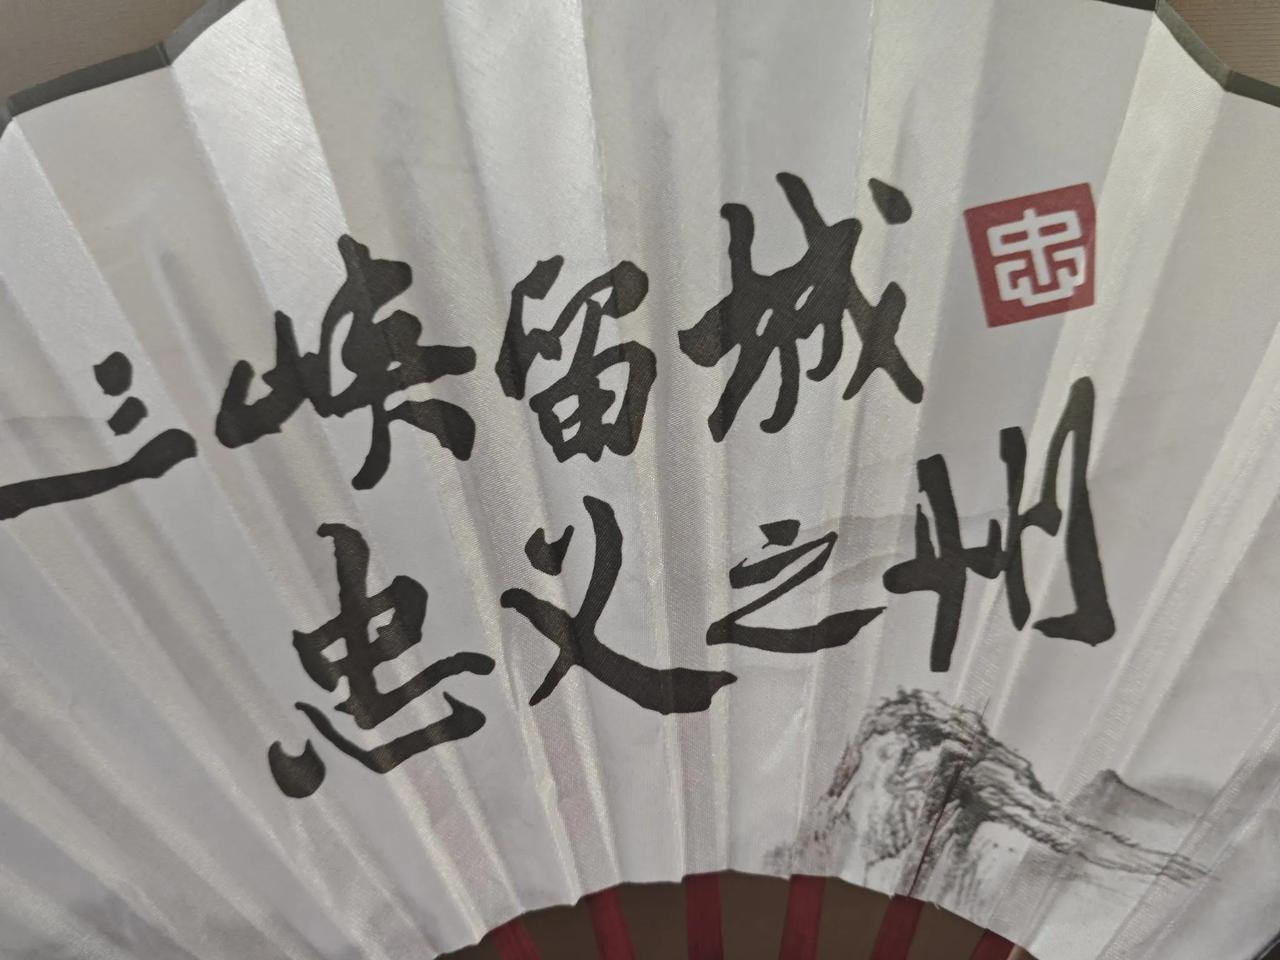 三峡留城
忠
忠义之州